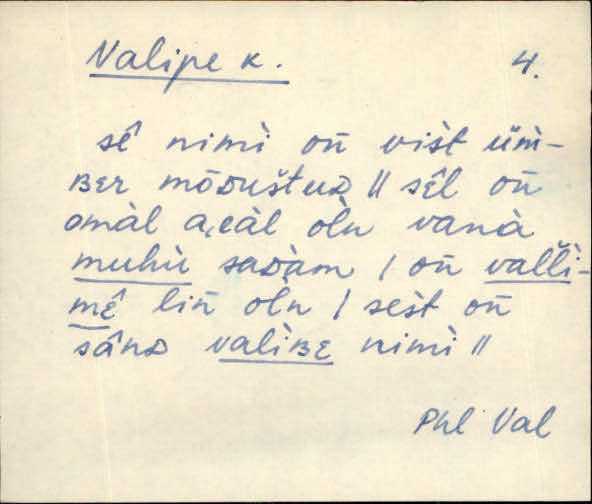 Valipe k. 4.
sê nimì on̄ vist üm̀-
ʙᴇr mōᴅuštuᴅ ॥ sêl on̄
omàl a͕eàl oln vanà
muhù saᴅàm / on̄ val̆l̆i-
mê̬ lin̄ oln / sest on̄
sânᴅ valìʙᴇ nimì ॥
Phl Val